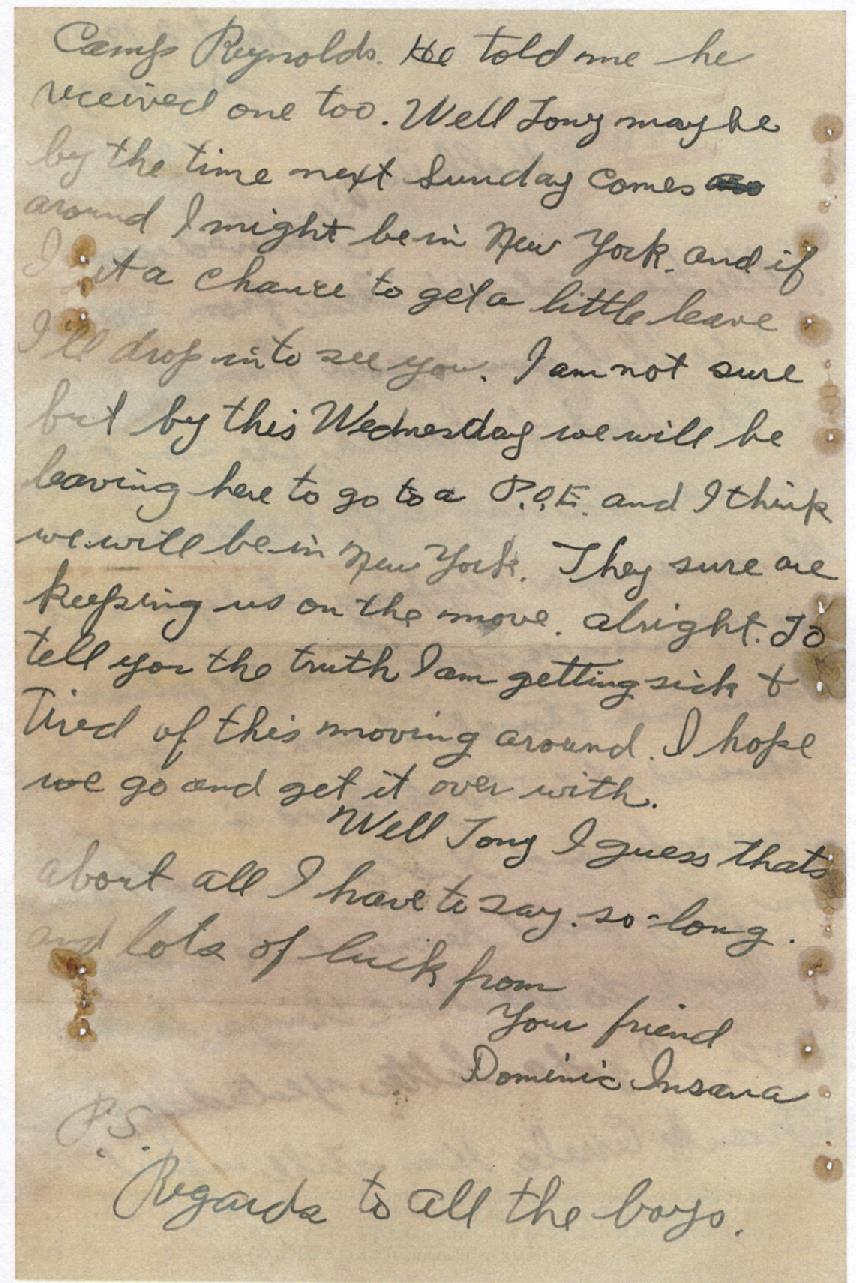 Camp Reynolds. He told me he
received one too. Well Tony maybe
by the time next Sunday comes
around I might be in New York. and if
I get a chance to get a little leave
I'll drop in to see you. I am not sure
but by this Wednesday we will be
leaving here to go to a P.O.E. and I think
we will be in New York. They sure are
keeping us on the move. alright. To
tell you the truth I am getting sick &
Tired of this moving around. I hope
we go and get it over with.
Well Tony I guess thats
about all I have to say. so-long.
and lots of luck from
Your friend
Dominic Insana
P.S.
Regards to all the boys.